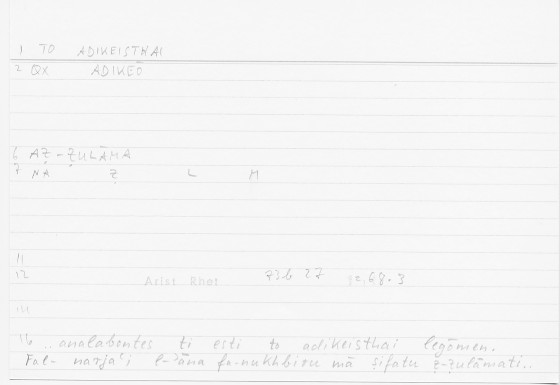 1 TO ADIKEISTHAI
2 QX ADIKEŌ
6 AẒ-ẒULĀMA
7 NA Ẓ L M
11
12 Arist Rhet 73b 27 68.3
14
16 ..analabontes ti esti to adikeisthai legōmen.
Fal- narja'i l-ʔāna fa-nukhbiru mā ṣifatu ẓ-ẓulāmati..